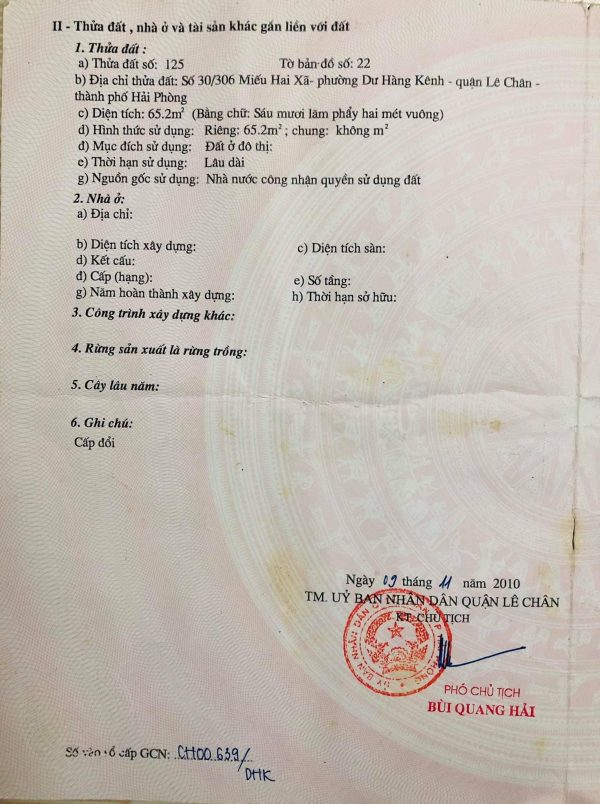 II - Thửa đất , nhà ở và tài sản khác gắn liền với đất
1. Thửa đất :
a) Thửa đất số: 125 Tờ bản đồ số: 22
b) Địa chỉ thửa đất: Số 30/306 Miếu Hai Xã- phường Dư Hàng Kênh - quận Lê Chân -
thành phố Hải Phòng
c) Diện tích: 65.2m² (Bằng chữ: Sáu mươi lăm phẩy hai mét vuông)
d) Hình thức sử dụng: Riêng: 65.2m² ; chung: không m²
đ) Mục đích sử dụng: Đất ở đô thị:
e) Thời hạn sử dụng: Lâu dài
g) Nguồn gốc sử dụng: Nhà nước công nhận quyền sử dụng đất
2. Nhà ở:
a) Địa chỉ:
b) Diện tích xây dựng: c) Diện tích sàn:
d) Kết cấu:
đ) Cấp (hạng): e) Số tầng:
g) Năm hoàn thành xây dựng: h) Thời hạn sở hữu:
3. Công trình xây dựng khác:
4. Rừng sản xuất là rừng trồng:
5. Cây lâu năm:
6. Ghi chú:
Cấp đổi
Ngày 09 tháng 11 năm 2010
TM. UỶ BAN NHÂN DÂN QUẬN LÊ CHÂN
KT. CHỦ TỊCH
PHÓ CHỦ TỊCH
BÙI QUANG HẢI
Số vào sổ cấp GCN: CH00639/
DHK